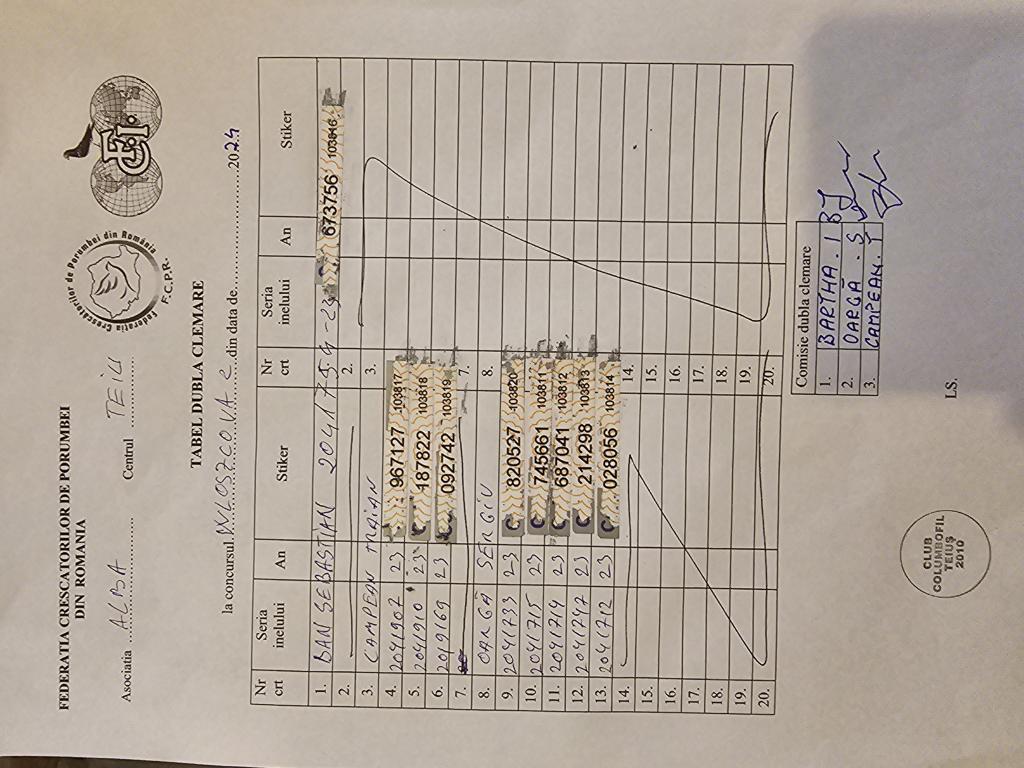 FEDERATIA CRESCATORILOR DE PORUMBEI
DIN ROMANIA
Federatia Crescatorilor de Porumbei din România
F.C.P.R.
F.C.I.
Asociatia ALBA Centrul TEIUS
TABEL DUBLA CLEMARE
la concursul din data de 2024
Nr crt Seria inelului An Stiker Nr crt Seria inelului An Stiker
1. BAN SEBASTIAN 2041759-23 673756 103816
2. 2.
3. CAMPEAN TRAIAN 3.
4. 2041902 23 967127 103817
5. 2041910 23 C 187822 103818
6. 2019169 23 092742 103819
7. 7.
8. OARGA SERGIU 8.
9. 2041733 23 C 820527 103820
10. 2041715 23 C 745661 103811
11. 2041714 23 C 687041 103812
12. 2041747 23 C 214298 103813
13. 2041712 23 C 028056 103814
14. 14.
15. 15.
16. 16.
17. 17.
18. 18.
19. 19.
20. 20.
Comisie dubla clemare
1. BARTHA . I
2. OARGĂ . S
3. CAMPEAN. T
CLUB
COLUMBOFIL
TEIUȘ
2010
LS.